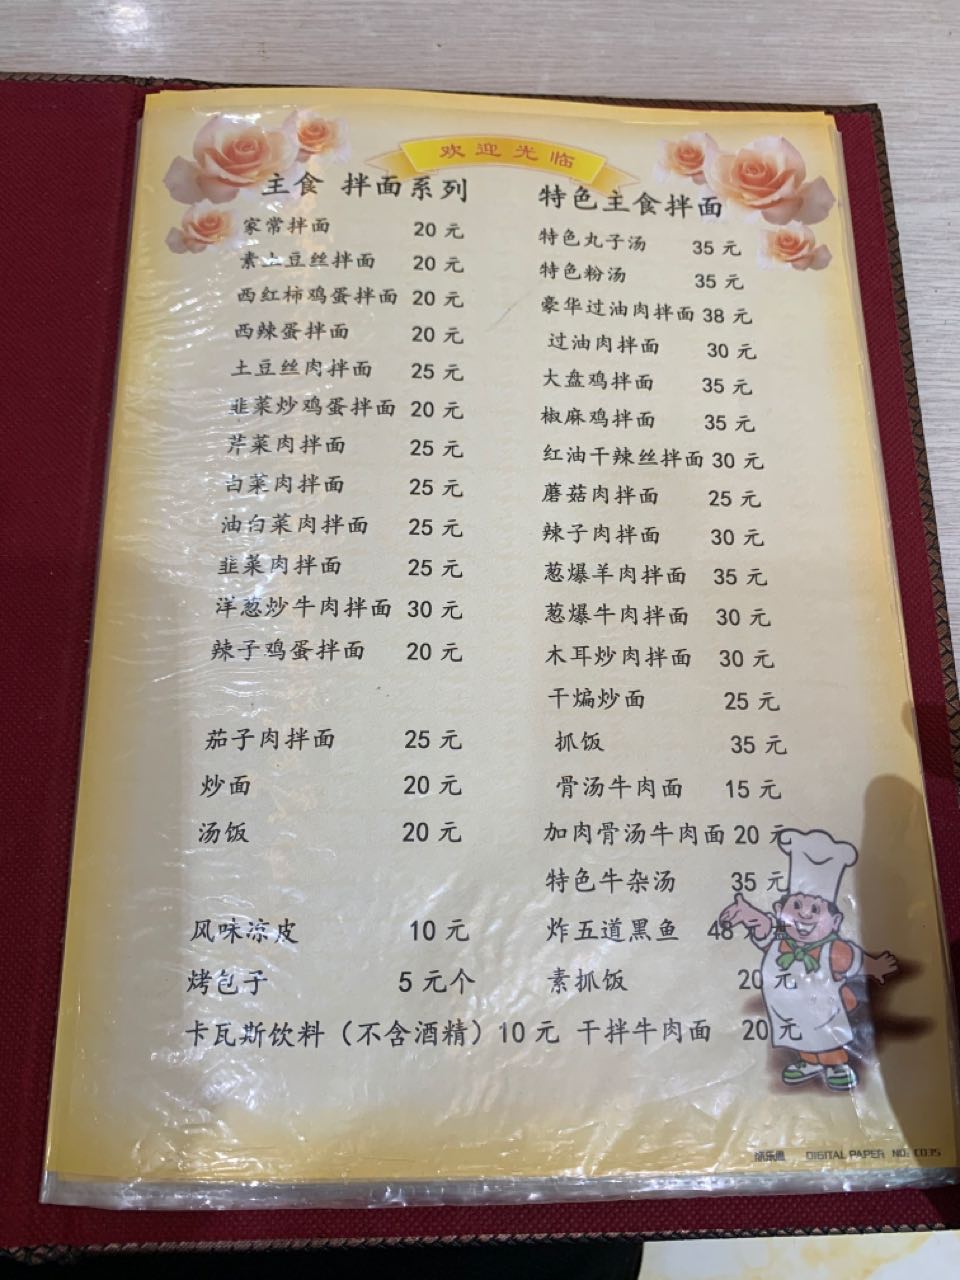 欢迎光临
主食 拌面系列
家常拌面 20 元
素土豆丝拌面 20 元
西红柿鸡蛋拌面 20 元
西辣蛋拌面 20 元
土豆丝肉拌面 25 元
韭菜炒鸡蛋拌面 20 元
芹菜肉拌面 25 元
白菜肉拌面 25 元
油白菜肉拌面 25 元
韭菜肉拌面 25 元
洋葱炒牛肉拌面 30 元
辣子鸡蛋拌面 20 元
茄子肉拌面 25 元
炒面 20 元
汤饭 20 元
风味凉皮 10 元
烤包子 5 元个
卡瓦斯饮料（不含酒精）10 元
特色主食拌面
特色丸子汤 35 元
特色粉汤 35 元
豪华过油肉拌面 38 元
过油肉拌面 30 元
大盘鸡拌面 35 元
椒麻鸡拌面 35 元
红油干辣丝拌面 30 元
蘑菇肉拌面 25 元
辣子肉拌面 30 元
葱爆羊肉拌面 35 元
葱爆牛肉拌面 30 元
木耳炒肉拌面 30 元
干煸炒面 25 元
抓饭 35 元
骨汤牛肉面 15 元
加肉骨汤牛肉面 20 元
特色牛杂汤 35 元
炸五道黑鱼 48 元盘
素抓饭 20 元
干拌牛肉面 20 元
DIGITAL PAPER NO: